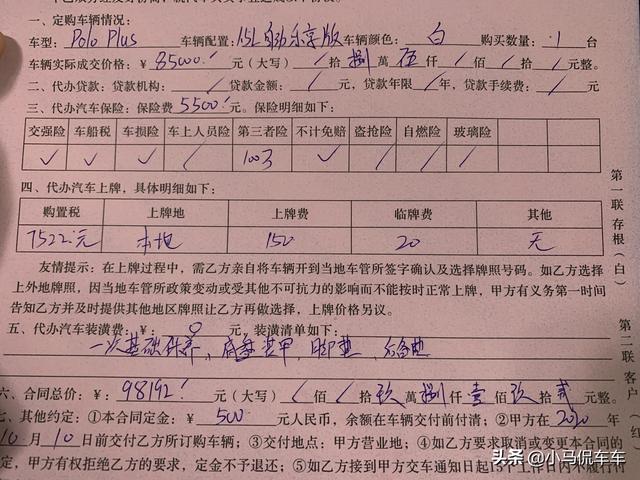 一、定购车辆情况：
车型：Polo Plus 车辆配置：1.5L自动乐享版 车辆颜色：白 购买数量：1 台
车辆实际成交价格：￥85000.- 元（大写）/ 拾 捌 萬 伍 仟 / 佰 / 拾 / 元整。
二、代办贷款：贷款机构：/ 贷款金额：/ 元，贷款年限 / 年，贷款手续费：/ 元
三、代办汽车保险：保险费 5500.- 元。保险明细如下：
交强险 车船税 车损险 车上人员险 第三者险 不计免赔 盗抢险 自燃险 玻璃险
✓ ✓ ✓ / 100万 ✓ / / /
四、代办汽车上牌，具体明细如下：
购置税 上牌地 上牌费 临牌费 其他
7522元 本地 150 20 无
友情提示：在上牌过程中，需乙方亲自将车辆开到当地车管所签字确认及选择牌照号码。如乙方选择
上外地牌照，因当地车管所政策变动或受其他不可抗力的影响而不能按时正常上牌，甲方有义务第一时间
告知乙方并及时提供其他地区牌照让乙方再做选择，上牌价格另议。
五、代办汽车装潢费：￥：0 元，装潢清单如下：
一次基础保养，底盘装甲，脚垫，后备垫
六、合同总价：￥：98192.- 元（大写）/ 佰 / 拾 玖 萬 捌 仟 壹 佰 玖 拾 贰 元整。
七、其他约定：①本合同定金：￥ 500 元人民币，余额在车辆交付前付清；②甲方在 2020 年
10 月 10 日前交付乙方所订购车辆；③交付地点：甲方营业地；④如乙方要求取消或变更本合同的
定，甲方有权拒绝乙方的要求，定金不予退还；⑤如乙方接到甲方交车通知日起15个工作日内不履行
第一联存根（白）
第二联客户（红）
头条 @小马侃车车